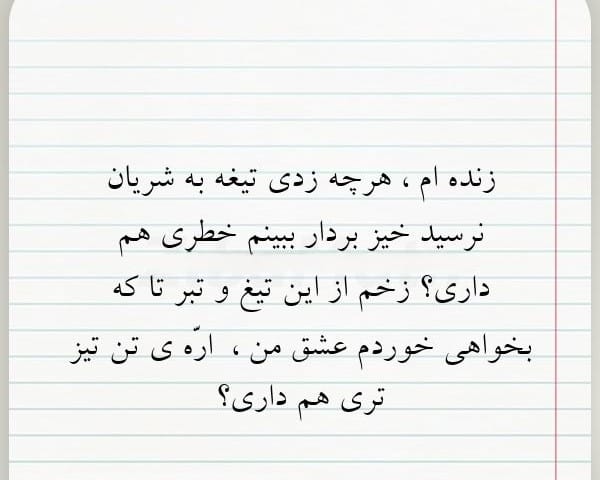 زنده ام ، هرچه زدی تیغه به شریان
نرسید خیز بردار ببینم خطری هم
داری؟ زخم از این تیغ و تبر تا که
بخواهی خوردم عشق من ، ارّه ی تن تیز
تری هم داری؟